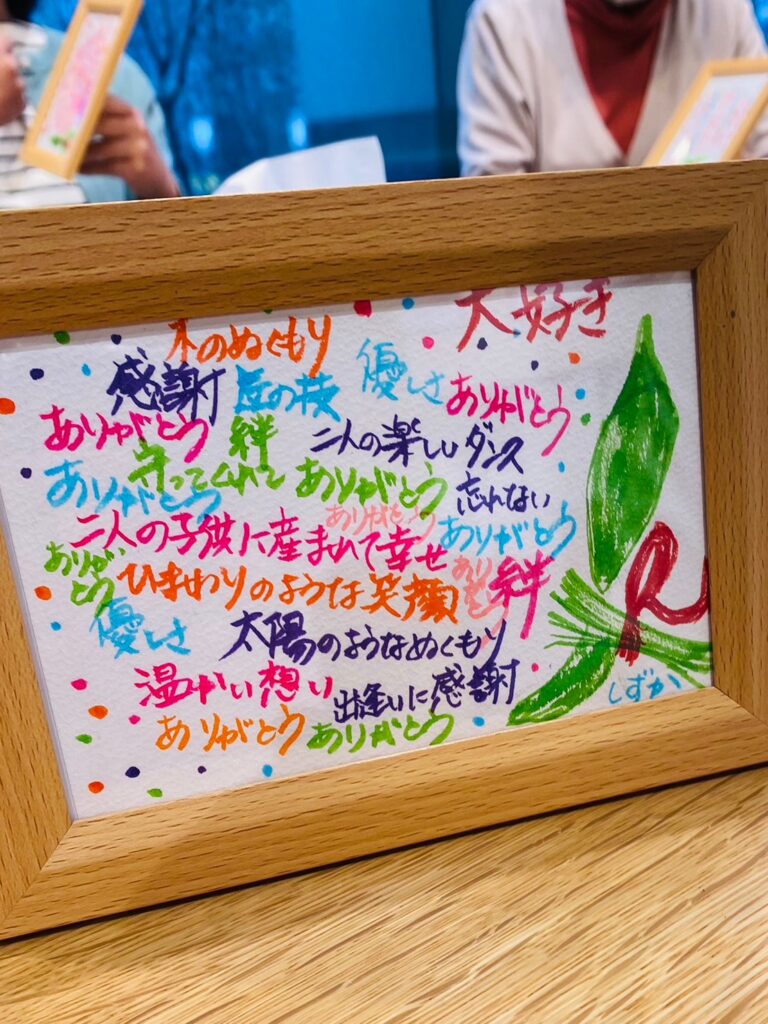 大好き
木のぬくもり
感謝 匠の技 優しさ ありがとう
ありがとう 絆 二人の楽しいダンス
守ってくれて ありがとう 忘れない
ありがとう ありがとう ありがとう
二人の子供に産まれて幸せ
ありがとう ひまわりのような笑顔 ありがとう 絆
優しさ 太陽のようなぬくもり
温かい想い 出逢いに感謝
ありがとう ありがとう
しずか